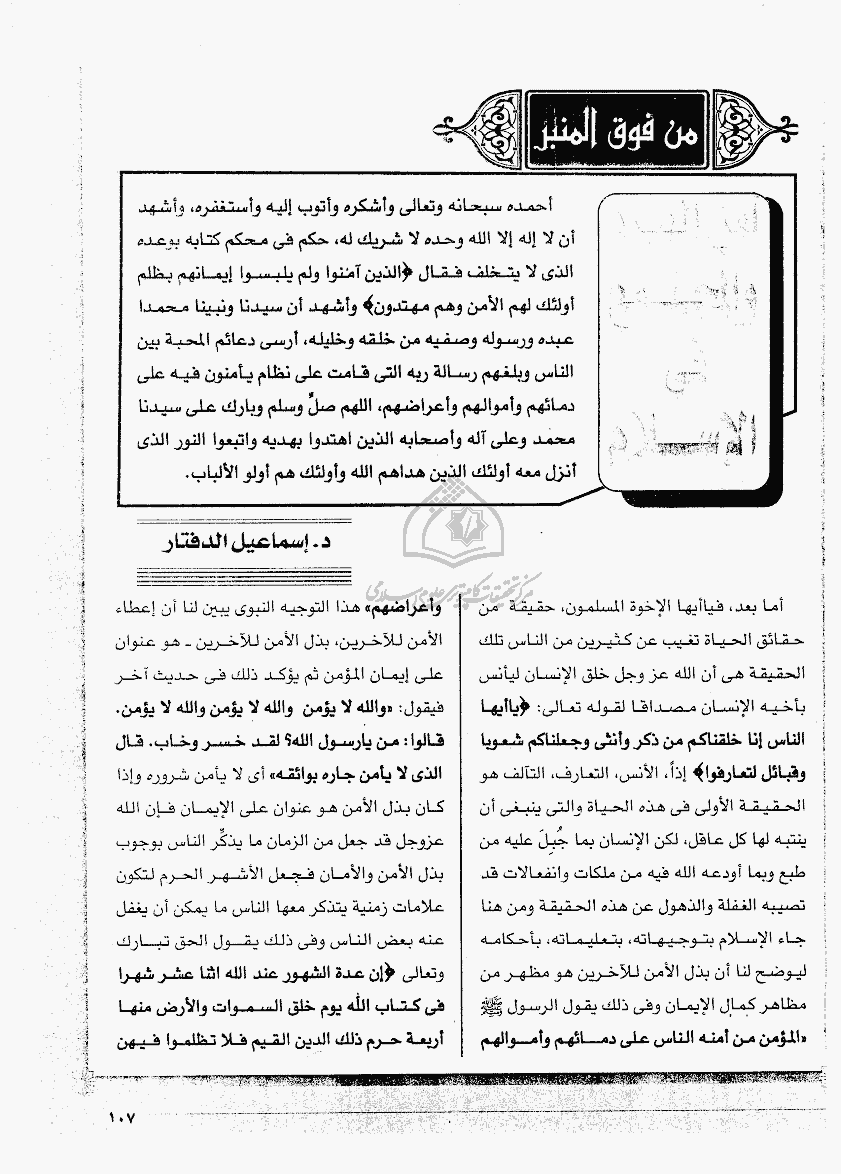 من فوق المنبر
الإسلام
أحمده سبحانه وتعالى وأشكره وأتوب إليه وأستغفره، وأشهد
أن لا إله إلا الله وحده لا شريك له، حكم فى محكم كتابه بوعده
الذى لا يتخلف فقال ﴿الذين آمنوا ولم يلبسوا إيمانهم بظلم
أولئك لهم الأمن وهم مهتدون﴾ وأشهد أن سيدنا ونبينا محمدا
عبده ورسوله وصفيه من خلقه وخليله، أرسى دعائم المحبة بين
الناس وبلغهم رسالة ربه التى قامت على نظام يأمنون فيه على
دمائهم وأموالهم وأعراضهم، اللهم صلِّ وسلم وبارك على سيدنا
محمد وعلى آله وأصحابه الذين اهتدوا بهديه واتبعوا النور الذى
أنزل معه أولئك الذين هداهم الله وأولئك هم أولو الألباب.
د. إسماعيل الدفتار
أما بعد، فياأيها الإخوة المسلمون، حقيقة من
حقائق الحياة تغيب عن كثيرين من الناس تلك
الحقيقة هى أن الله عز وجل خلق الإنسان ليأنس
بأخيه الإنسان مصداقا لقوله تعالى: ﴿ياأيها
الناس إنا خلقناكم من ذكر وأنثى وجعلناكم شعوبا
وقبائل لتعارفوا﴾ إذاً، الأنس، التعارف، التآلف هو
الحقيقة الأولى فى هذه الحياة والتى ينبغى أن
ينتبه لها كل عاقل، لكن الإنسان بما جُبِلَ عليه من
طبع وبما أودعه الله فيه من ملكات وانفعالات قد
تصيبه الغفلة والذهول عن هذه الحقيقة ومن هنا
جاء الإسلام بتوجيهاته، بتعليماته، بأحكامه
ليوضح لنا أن بذل الأمن للآخرين هو مظهر من
مظاهر كمال الإيمان وفى ذلك يقول الرسول ﷺ
«المؤمن من أمنه الناس على دمائهم وأموالهم
وأعراضهم» هذا التوجيه النبوى يبين لنا أن إعطاء
الأمن للآخرين، بذل الأمن للآخرين - هو عنوان
على إيمان المؤمن ثم يؤكد ذلك فى حديث آخر
فيقول: «والله لا يؤمن والله لا يؤمن والله لا يؤمن.
قالوا: من يارسول الله؟ لقد خسر وخاب. قال
الذى لا يأمن جاره بوائقه» أى لا يأمن شروره وإذا
كان بذل الأمن هو عنوان على الإيمان فإن الله
عزوجل قد جعل من الزمان ما يذكِّر الناس بوجوب
بذل الأمن والأمان فجعل الأشهر الحرم لتكون
علامات زمنية يتذكر معها الناس ما يمكن أن يغفل
عنه بعض الناس وفى ذلك يقول الحق تبارك
وتعالى ﴿إن عدة الشهور عند الله اثنا عشر شهرا
فى كتاب الله يوم خلق السموات والأرض منها
أربعة حرم ذلك الدين القيم فلا تظلموا فيهن
١٠٧